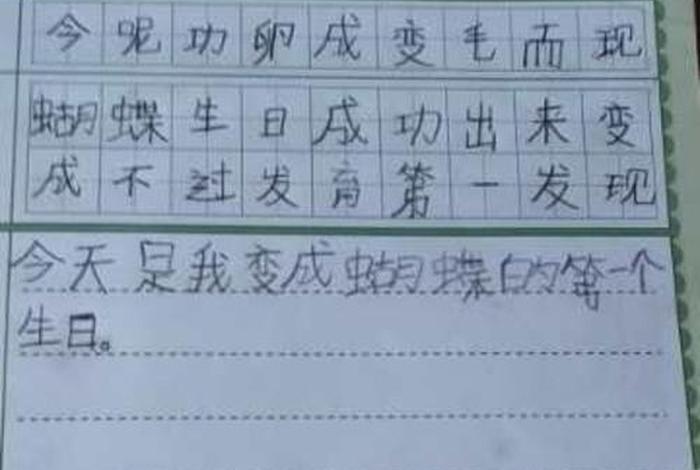 今呢功卵成变毛而现
蝴蝶生日成功出来变
成不过发育第一发现
今天是我变成蝴蝶的第一个
生日。